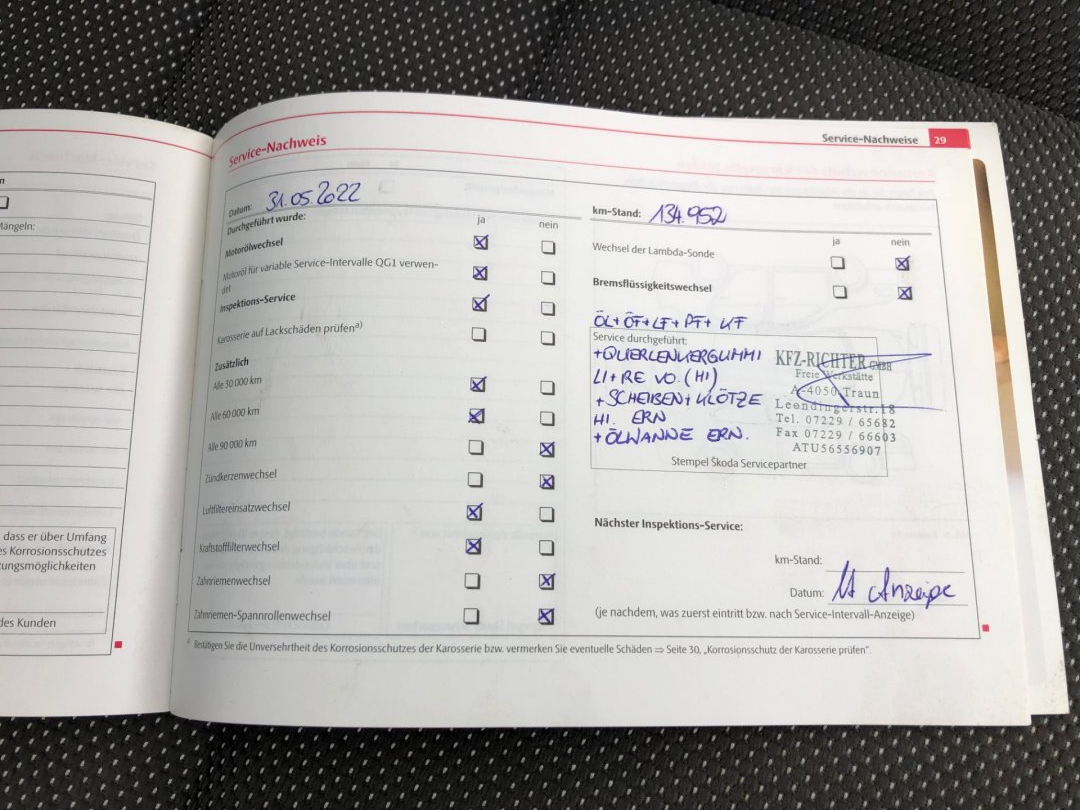 n
Mängeln:
dass er über Umfang
es Korrosionsschutzes
tungsmöglichkeiten
des Kunden
Service-Nachweise 29
Service-Nachweis
Datum: 31.05.2022
km-Stand: 134.952
Durchgeführt wurde:
ja nein
ja nein
Motorölwechsel
Motoröl für variable Service-Intervalle QG1 verwen-
det
Inspektions-Service
Karosserie auf Lackschäden prüfen a)
Zusätzlich
Alle 30 000 km
Alle 60 000 km
Alle 90 000 km
Zündkerzenwechsel
Luftfiltereinsatzwechsel
Kraftstofffilterwechsel
Zahnriemenwechsel
Zahnriemen-Spannrollenwechsel
Wechsel der Lambda-Sonde
Bremsflüssigkeitswechsel
ÖL+ÖF+LF+PF+KF
Service durchgeführt:
+QUERLENKERGUMMI
LI+RE VO. (HI)
+SCHEIBEN+KLÖTZE
HI. ERN
+ÖLWANNE ERN.
KFZ-RICHTER GMBH
Freie Werkstätte
A-4050 Traun
Leondingerstr. 18
Tel. 07229 / 65682
Fax 07229 / 66603
ATU56556907
Stempel Škoda Servicepartner
Nächster Inspektions-Service:
km-Stand:
Datum: Anzeige
(je nachdem, was zuerst eintritt bzw. nach Service-Intervall-Anzeige)
a Bestätigen Sie die Unversehrtheit des Korrosionsschutzes der Karosserie bzw. vermerken Sie eventuelle Schäden ⇒ Seite 30, „Korrosionsschutz der Karosserie prüfen".